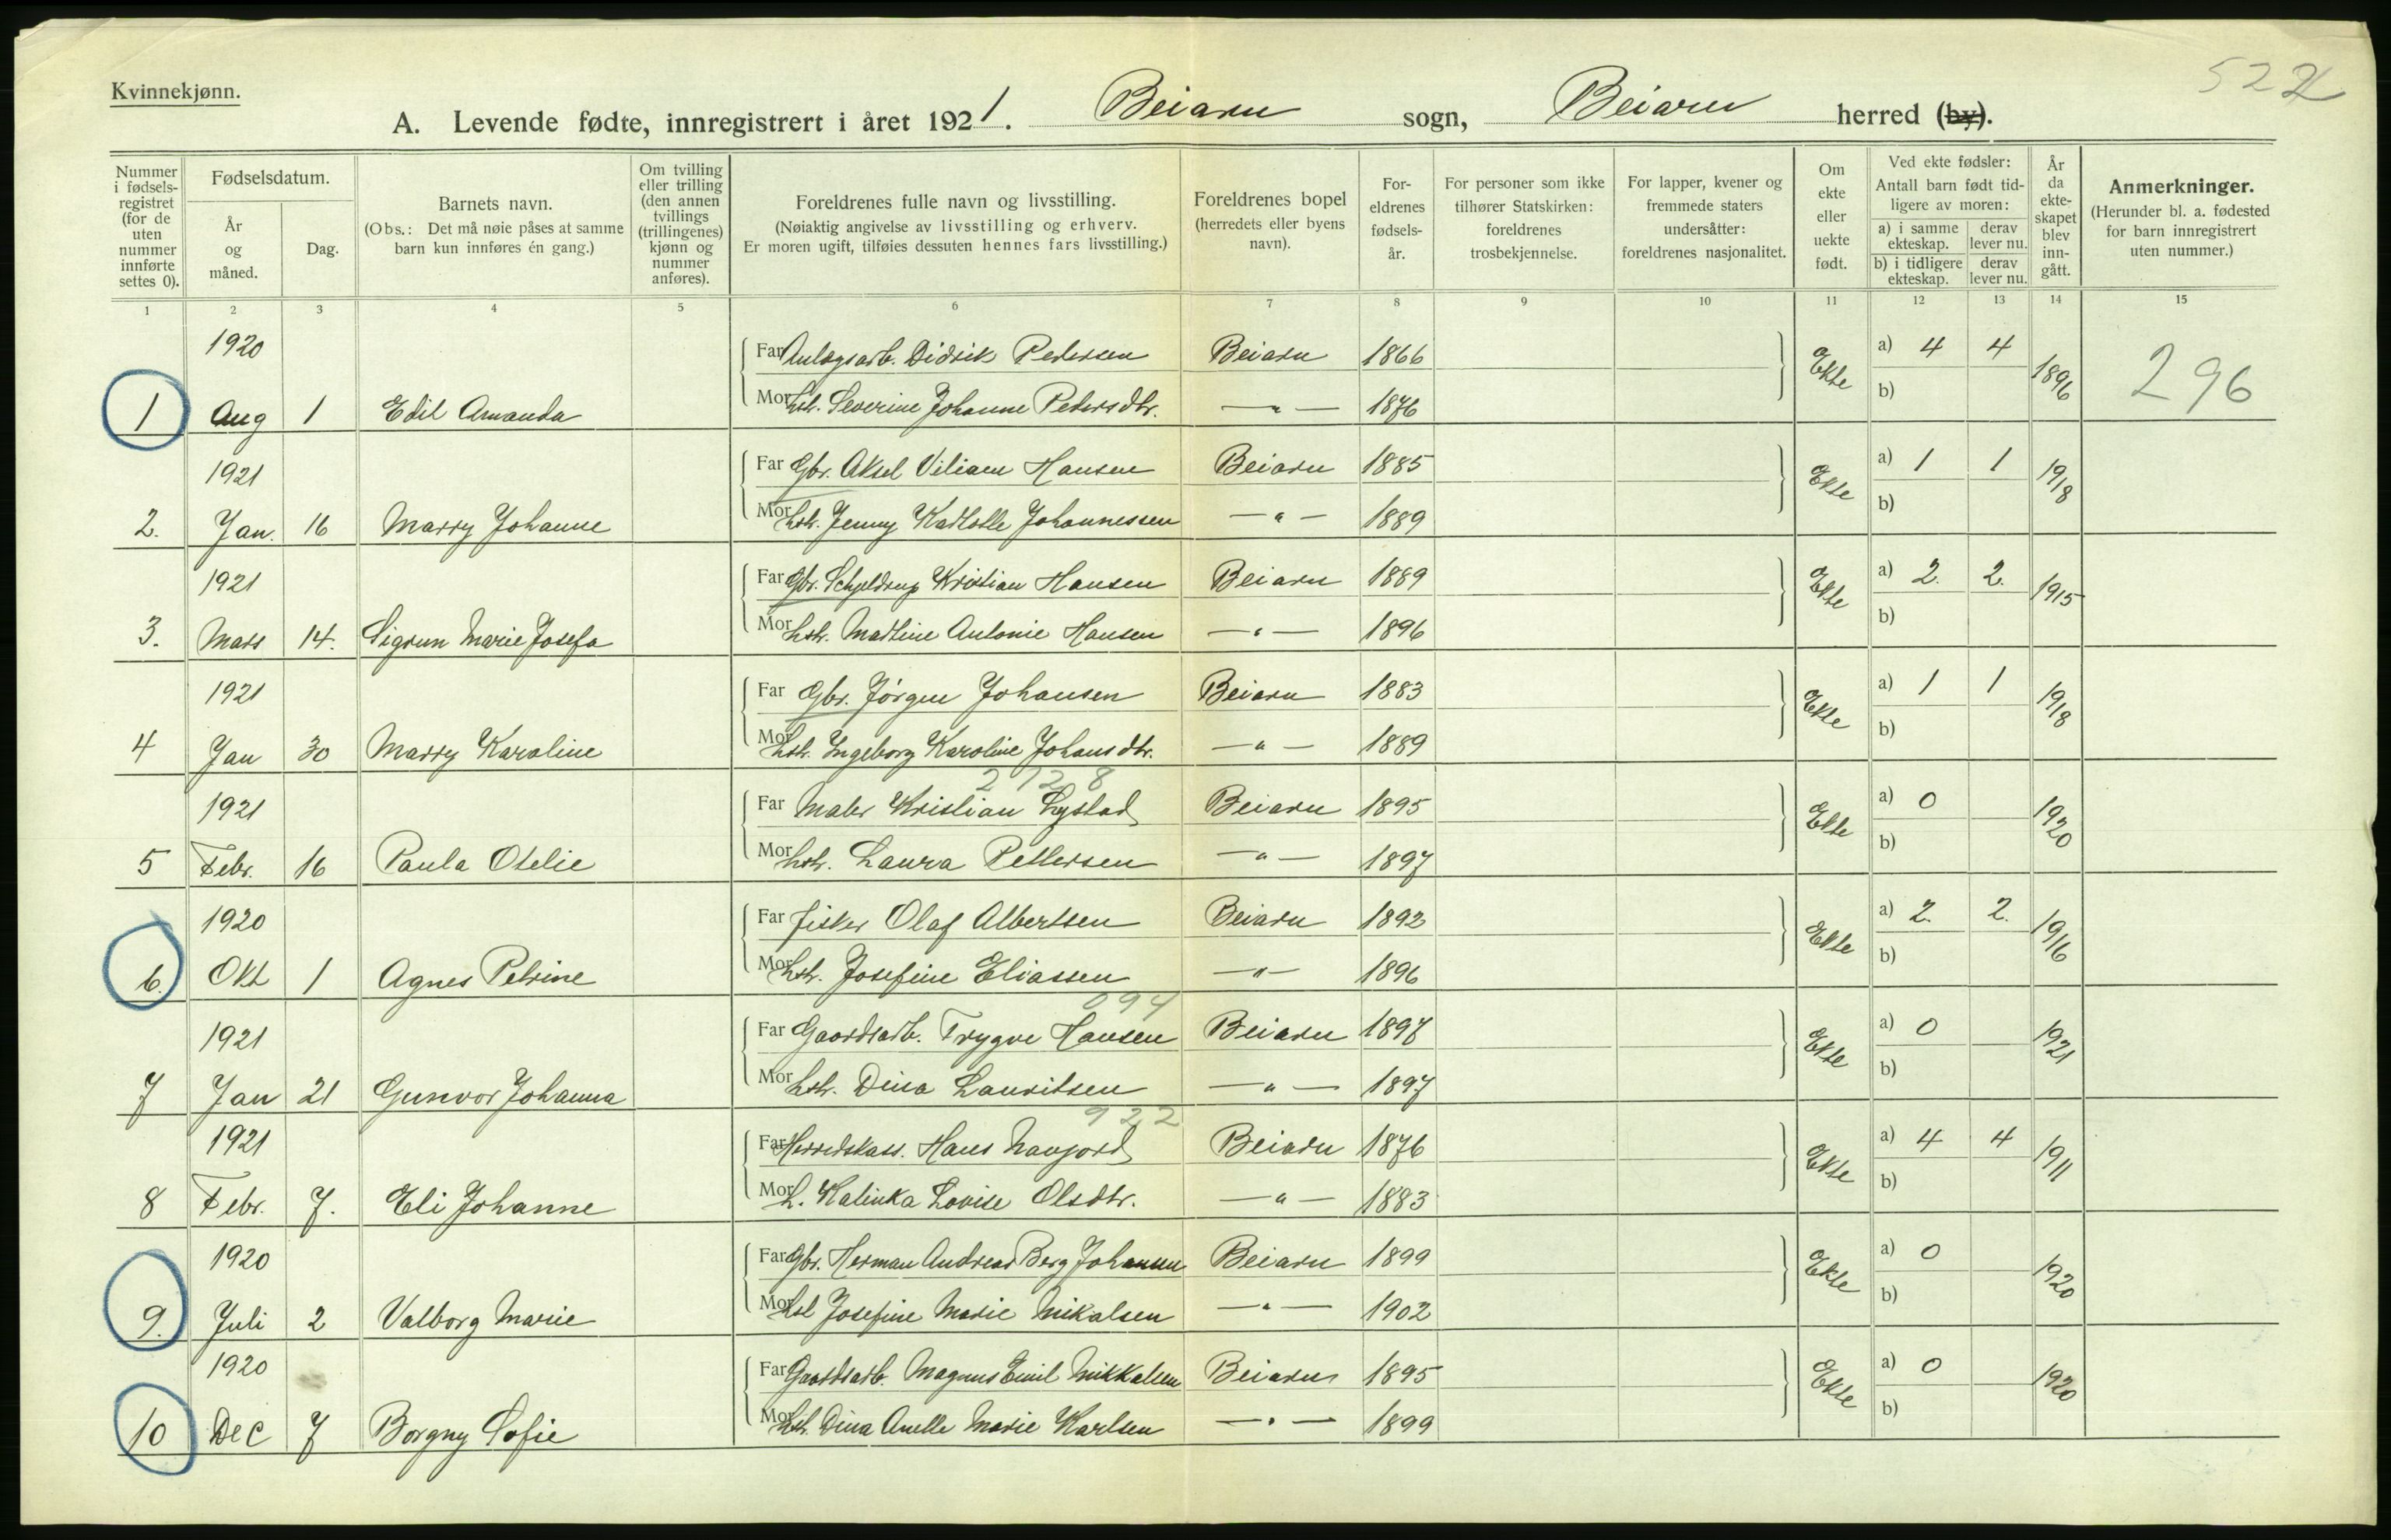 Kvinnekjønn.
522
A. Levende fødte, innregistrert i året 1921. Beiarn sogn, Beiarn herred (by).
Nummer i fødsels-registret (for de uten nummer innførte settes 0).
Fødselsdatum.
År og måned.
Dag.
Barnets navn.
(Obs.: Det må nøie påses at samme barn kun innføres én gang.)
Om tvilling eller trilling (den annen tvillings (trillingenes) kjønn og nummer anføres).
Foreldrenes fulle navn og livsstilling.
(Nøiaktig angivelse av livsstilling og erhverv.
Er moren ugift, tilføies dessuten hennes fars livsstilling.)
Foreldrenes bopel (herredets eller byens navn).
For-eldrenes fødsels-år.
For personer som ikke tilhører Statskirken: foreldrenes trosbekjennelse.
For lapper, kvener og fremmede staters undersåtter: foreldrenes nasjonalitet.
Om ekte eller uekte født.
Ved ekte fødsler: Antall barn født tid-ligere av moren:
a) i samme ekteskap. derav lever nu.
b) i tidligere ekteskap. derav lever nu.
År da ekte-skapet blev inn-gått.
Anmerkninger.
(Herunder bl. a. fødested for barn innregistrert uten nummer.)
1 2 3 4 5 6 7 8 9 10 11 12 13 14 15
1920 Far Anlagsarb. Didrik Pedersen Beiarn 1866 Ekte a) 4 4 1896 296
1 Aug 1 Edil Amanda Mor hst. Severine Johanne Pedersdtr. —"— 1876 b)
1921 Far Gbr. Aksel Viliam Hansen Beiarn 1885 Ekte a) 1 1 1918
2. Jan. 16 Marry Johanne Mor hst. Jenny Karlotte Johannessen —"— 1889 b)
1921 Far Gbr. Schjeldrup Kristian Hansen Beiarn 1889 Ekte a) 2. 2. 1915
3. Mars 14. Sigrun Marie Josefa Mor hst. Martine Antonie Hansen —"— 1896 b)
1921 Far Gbr. Jørgen Johansen Beiarn 1883 Ekte a) 1 1 1918
4 Jan 30 Marry Karoline Mor hst. Ingeborg Karoline Johansdtr. —"— 1889 b)
2728
1921 Far Maler Kristian Lystad Beiarn 1895 Ekte a) 0 1920
5 Febr. 16 Paula Otelie Mor hst. Laura Pettersen —"— 1897 b)
1920 Far fisker Olaf Albertsen Beiarn 1892 Ekte a) 2. 2. 1916
6. Okt 1 Agnes Petrine Mor hst. Josefine Eliassen —"— 1896 b)
094
1921 Far Gaardsarb. Trygve Hansen Beiarn 1897 Ekte a) 0 1921
7 Jan 21 Gunvor Johanna Mor hst. Dina Lauritsen —"— 1897 b)
922
1921 Far Herredskass. Hans Navjord Beiarn 1876 Ekte a) 4 4 1911
8 Febr. 7. Eli Johanne Mor h. Kalinka Lovise Olsdtr. —"— 1883 b)
1920 Far Gbr. Herman Andreas Berg Johansen Beiarn 1899 Ekte a) 0 1920
9. Juli 2 Valborg Marie Mor hst Josefine Marie Mikalsen —"— 1902 b)
1920 Far Gaardsarb. Magnus Emil Mikkalsen Beiarn 1895 Ekte a) 0 1920
10 Dec 7 Borgny Sofie Mor hst. Dina Anelle Marie Karlsen —"— 1899 b)